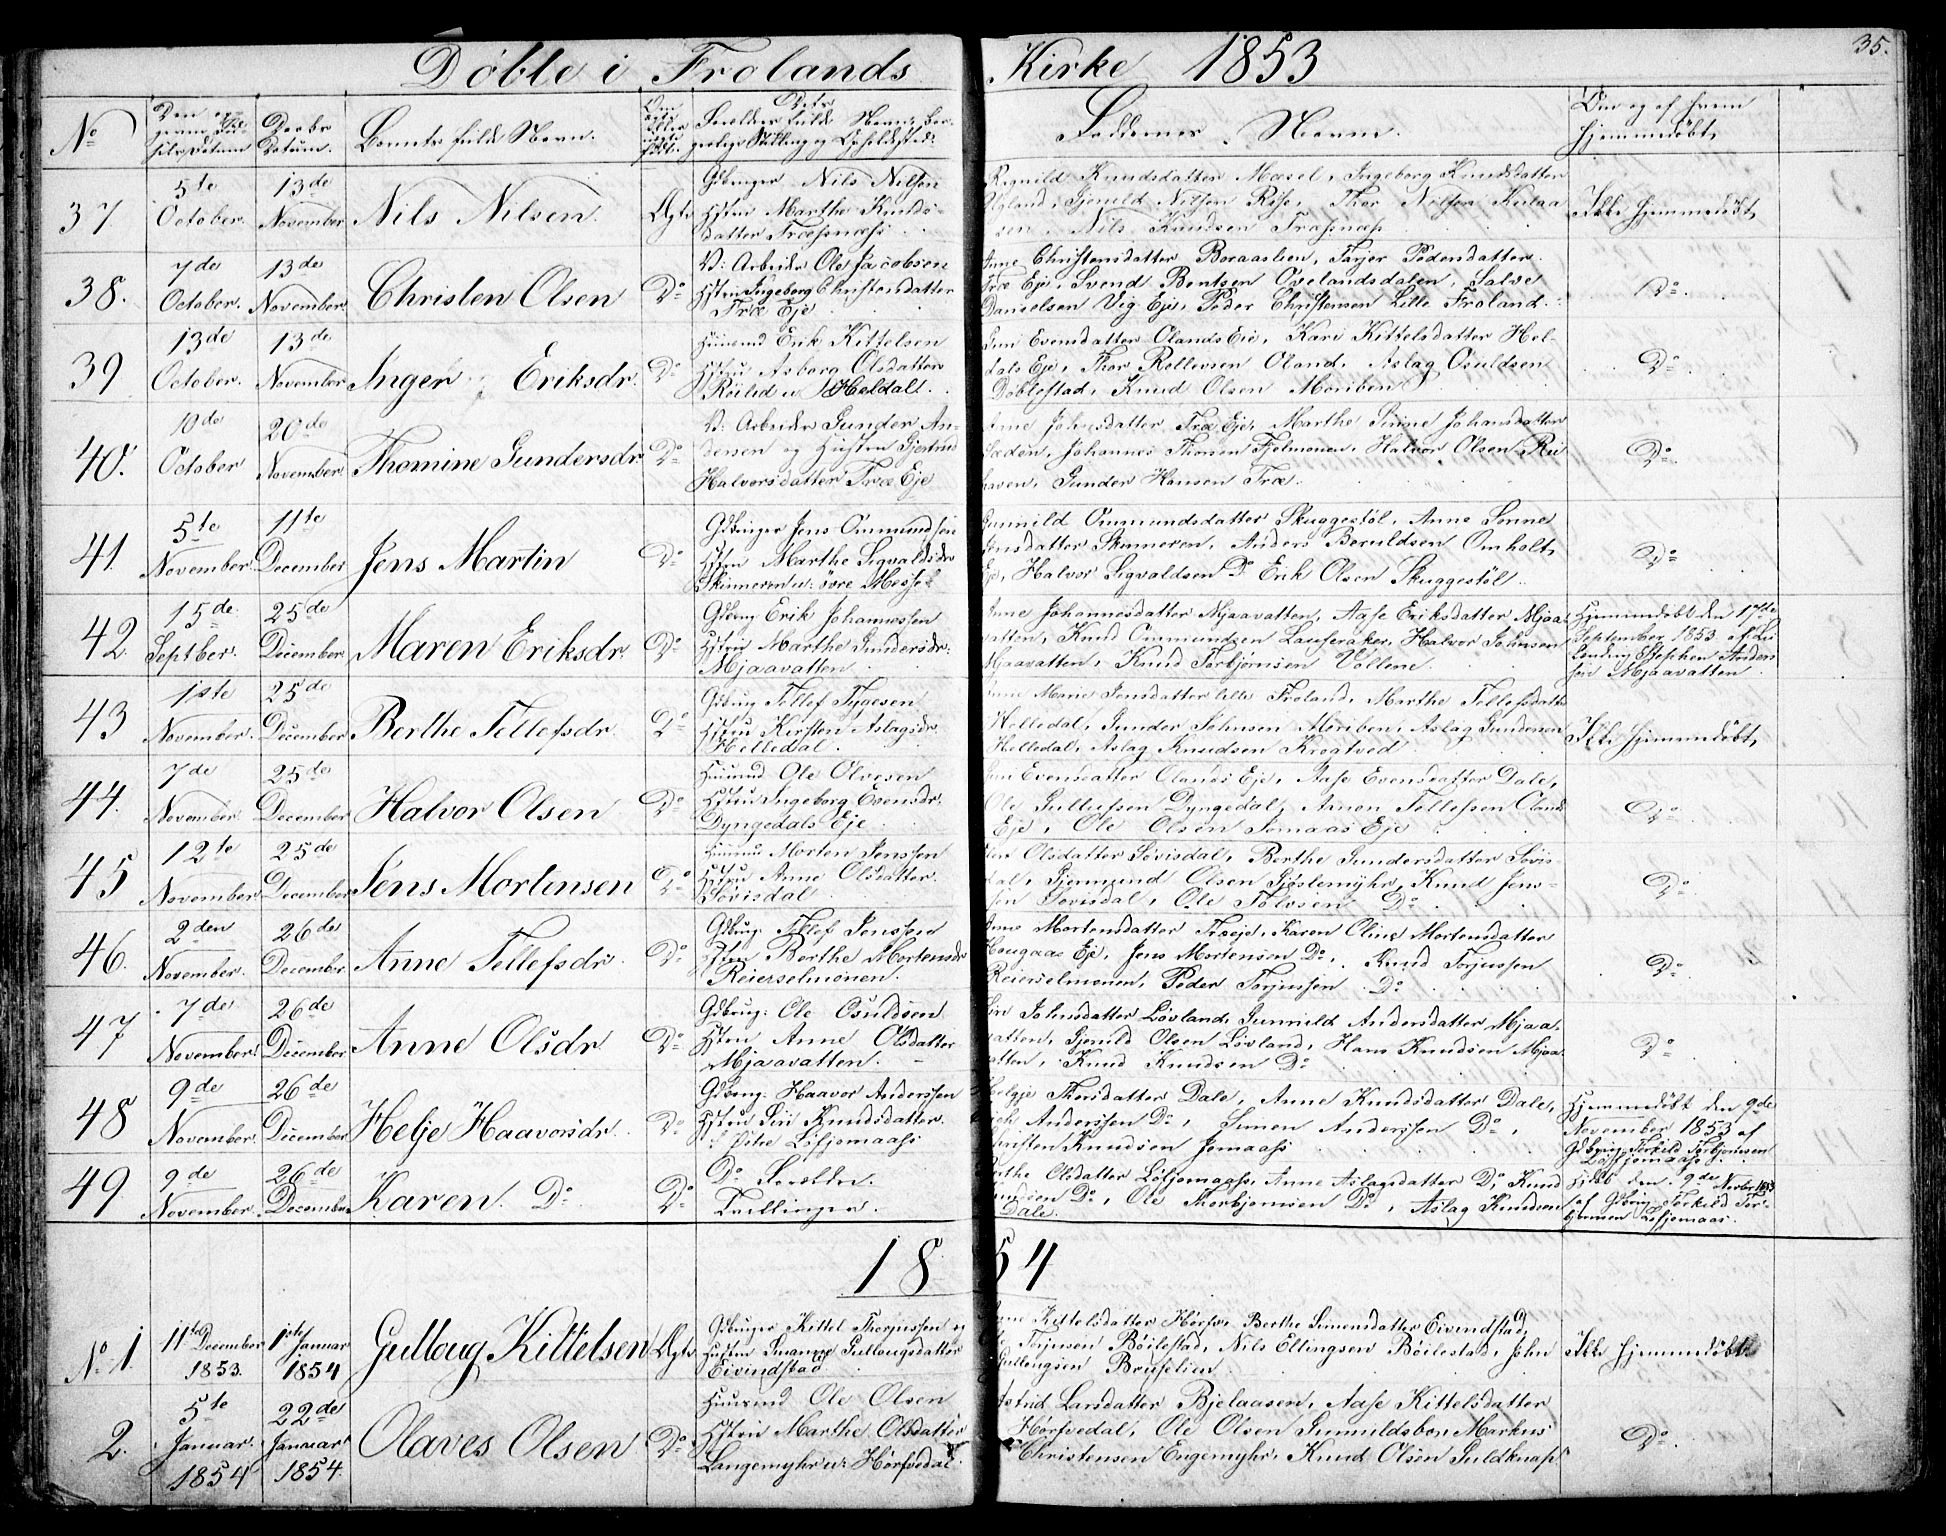 35.
Døbte i Frolands Kirke 1853
No
Datum.
Barnets fulde Navn.
Faddernes Navne.
hjemmedøbt
37 5te October. 13de November Nils Nilsen. Ægte
Gbruger Nils Nilsen
Hstru Marthe Knuds-
datter Træsnæss
Knudsdatter Mæsel, Ingeborg Knudsdatter
Gjeruld Nilsen Rise, Thor Nilsen
sen, Nils Knudsen Træsnæss
Ikke hjemmedøbt
38. 7de October. 13de November Christen Olsen Do
Arbeider Ole Jacobsen
Hstru Ingeborg Christensdatter
Træ Eje
Anne Christensdatter Boraaslien, Tarjer Pedersdatter
Træ Eje, Svend Bentsen Ovelandsdalen, Salve
Danielsen Vig Eje, Peder Christensen Lille Froland.
Do
39 13de October. 13de November Inger Eriksdr. Do
Huusmd Erik Kittelsen
Hstru Asborg Olsdatter
u/ Heldal.
Evensdatter Olands Eie, Kari Kittelsdatter Hel-
dals Eje, Thor Rollevsen Oland, Aslag Osuldsen
Døblestad, Knud Olsen Moriben
Do
40. 10de October 20de November Thomine Gundersdr. Do
Arbeider Gunder An-
densen og Hustru Gjertrud
Halvorsdatter Træ Eje
Anne Johnsdatter Træ Eje, Marthe Sinne Johansdatter
Johannes Thorsen Fjelmonen, Halvor Olsen
haven, Gunder Hansen Træ.
Do
41. 5te November 11te December Jens Martin Do
Gbruger Jens Ommundsen
Hstru Marthe Sigvaldsdr
Skinneren u. øvre Messel
Gunnild Ommundsdatter Skuggestøl, Anne Sonne
Jensdatter Skinneren, Anders Beruldsen Omholt
Eje, Halvor Sigvaldsen Do Erik Olsen Skuggestøl.
Do
42. 15de Septber. 25de December Maren Eriksdr. Do
Gbrug Erik Johannessen
Hstru Marthe Gundersdr.
Mjaavatten
Anne Johannesdatter Mjaavatten, Aase Eriksdatter Mjaa-
vatten, Knud Ommundsen Lauveraker, Halvor Johnsen
Mjaavatten, Knud Torbjørnsen Vollene.
Hjemmedøbt den 17de
September 1853 af
Stephen Anders
sen Mjaavatten
43 1ste November. 25de December Berthe Tellefsdr Do
Gbrug Tellef Tygesen
Hstru Kirsten Aslagsdr.
Helledal.
Anne Marie Jensdatter lille Froland, Marthe Tellefsdatter
Helledal, Gunder Johnsen Moriben, Aslag Gundersen
Helledal, Aslag Knudsen Kroatved
Ikke hjemmedøbt
44. 7de November 25de December Halvor Olsen Do
Huusmd Ole Olvesen
Hstru Ingeborg Evensdr.
Dyngedals Eje
Evensdatter Olands Eje, Aase Evensdatter Dale,
Ole Gullufsen Dyngedal, Arnon Tellefsen Olands
Eje, Ole Olsen Jomaas Eje
Do
45 12te November. 25de December Jens Mortensen Do
Huusmd Morten Jenssen
Hstru Anne Olsdatter
Søvisdal
Olsdatter Søvisdal, Berthe Gundersdatter Søvis
dal, Gjermund Olsen Gjøslemyhr, Knud Jens-
sen Søvisdal, Ole Tolvsen Do
Do
46. 2den November. 26de December Anne Tellefsdr Do
Gbrug Tellef Jenssen
Hstru Berthe Mortensdr
Reierselmonen.
Anne Mortensdatter Træeje, Karen Oline Mortensdatter
Haugaas Eje, Jens Mortensen Do, Knud Torjussen
Reierselmonen, Peder Torjussen Do
Do
47 7de November. 26de December Anne Olsdr Do
Gbrug: Ole Osuldsen
Hstru Anne Olsdatter
Mjaavatten.
Siri Johnsdatter Løvland, Gunnild Andersdatter Mjaa-
vatten, Gjeruld Olsen Løvland, Hans Knudsen Mjaa
vatten, Knud Knudsen Do
Do
48 9de November 26de December Helje Haavorsdr. Do
Gbrug: Haavor Anderssen
Hstru Siri Knudsdatter
Løfjomaass
Helgje Thorsdatter Dale, Anne Knudsdatter Dale,
Anderssen Do, Simen Anderssen Do,
Knudsen Jomaass
Hjemmedøbt den 9de
November 1853 af
Gbrug Torkild Torbjørnsen
Løfjomaass
49 9de November. 26de December Karen. Do Do
Do Forældre.
Tvillinger.
Berthe Olsdatter Løfjomaass, Anne Aslagsdatter Do, Knud
Knudsen Do, Ole Thorbjørnsen Do, Aslag Knudsen
Dale.
Hjdbt den 9de Novbr 1853
af Gbrug Torkild Tor-
bjørnsen Løfjomaas.
1854
No 1. 11te December 1853. 1ste Januar 1854 Gulloug Kittelsen Ægte
Gbruger Kittel Thorjussen og
Hustru Gullougsdatter
Eivindstad
Anne Kittelsdatter Hørsv, Berthe Simensdatter Eivindstad,
Torjusen Bøilestad, Nils Ellingsen Bøilestad, John
Gullougsen Bruselien
Ikke hjemmedøbt
2. 5te Januar. 1854 22de Januar 1854 Olaves Olsen Do
Huusmd Ole Olsen
Hstru Marthe Olsdatter
Langemyhr u. Hørsvedal.
Astrid Larsdatter Bjelaasen, Aase Kittelsdatter
Hørsvedal, Ole Olsen Gunuldsbo, Markus
Christensen Engemyhr, Knud Olsen Guldknap
Do